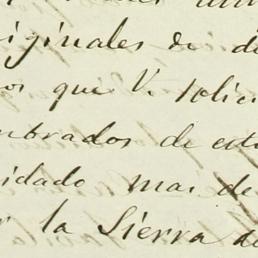 iginales de d
os que V. solici
mbrados de est
idado mas de
la Sierra de